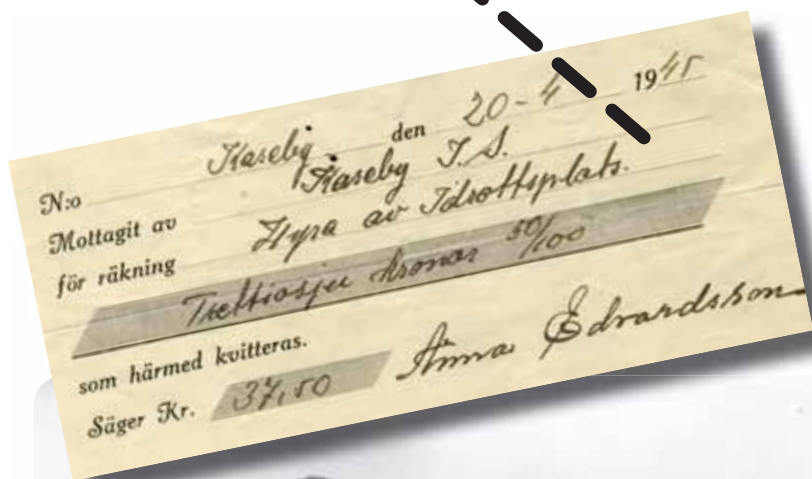 N:o Kaseby den 20-4 1945
Mottagit av Kaseby I.S.
för räkning Hyra av Idrottsplats.
Trettiosju kronor 50/100
som härmed kvitteras.
Säger Kr. 37,50 Anna Edvardsson